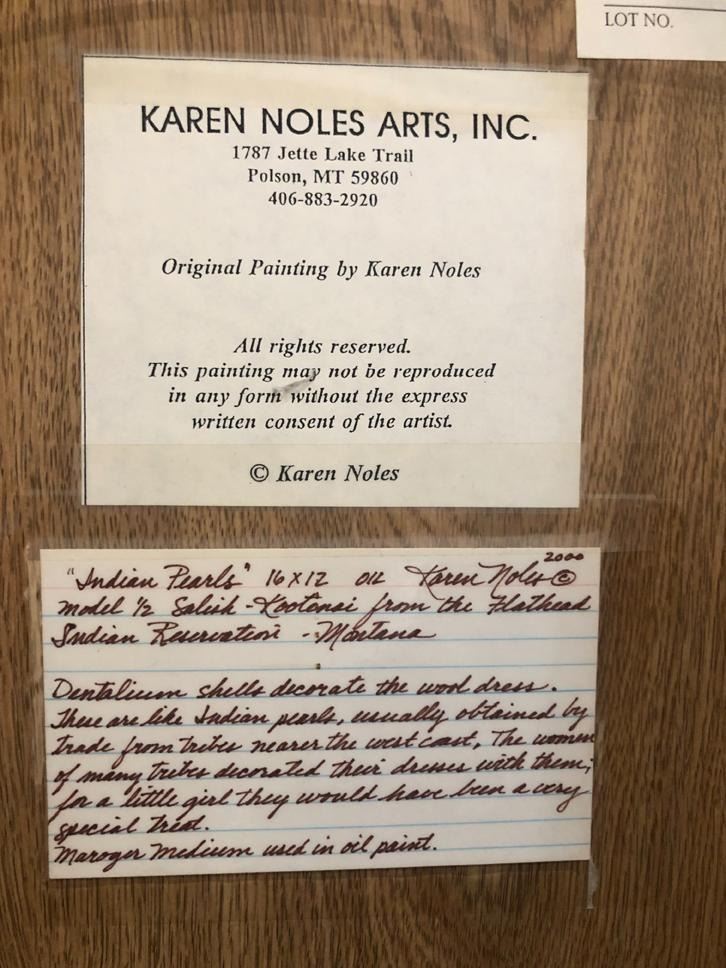 LOT NO.
KAREN NOLES ARTS, INC.
1787 Jette Lake Trail
Polson, MT 59860
406-883-2920
Original Painting by Karen Noles
All rights reserved.
This painting may not be reproduced
in any form without the express
written consent of the artist.
© Karen Noles
2000
"Indian Pearls" 16 x 12 OIL Karen Noles ©
Model 1/2 Salish-Kootenai from the Flathead
Indian Reservation - Montana
Dentalium shells decorate the wool dress.
These are like Indian pearls, usually obtained by
trade from tribes nearer the west coast. The women
of many tribes decorated their dresses with them;
for a little girl they would have been a very
special treat.
Maroger Medium used in oil paint.